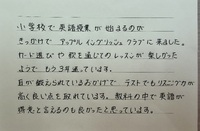 小学校で英語授業が始まるのが
きっかけでアップル イングリッシュ クラブに来ました。
カード遊びや歌を通じてのレッスンが楽しかった
ようでもう3年通っています。
耳が鍛えられているおかげで、テストでもリスニングの
高く良い点も取れている。教科の中で英語が
得意と言えるのも良かったと思っています。